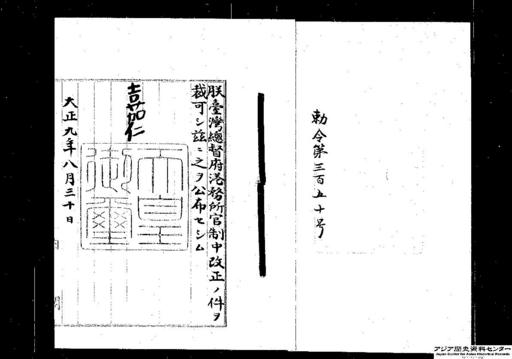 勅令第三百五十号
朕臺灣總督府港務所官制中改正ノ件ヲ
裁可シ茲ニ之ヲ公布セシム
嘉仁
天皇御璽
大正九年八月三十日
アジア歴史資料センター
Japan Center for Asian Historical Records